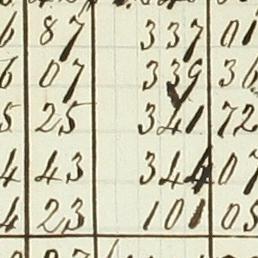 6 87 337 01
6 07 339 36
5 25 341 72
4 43 344 07
4 23 101 05